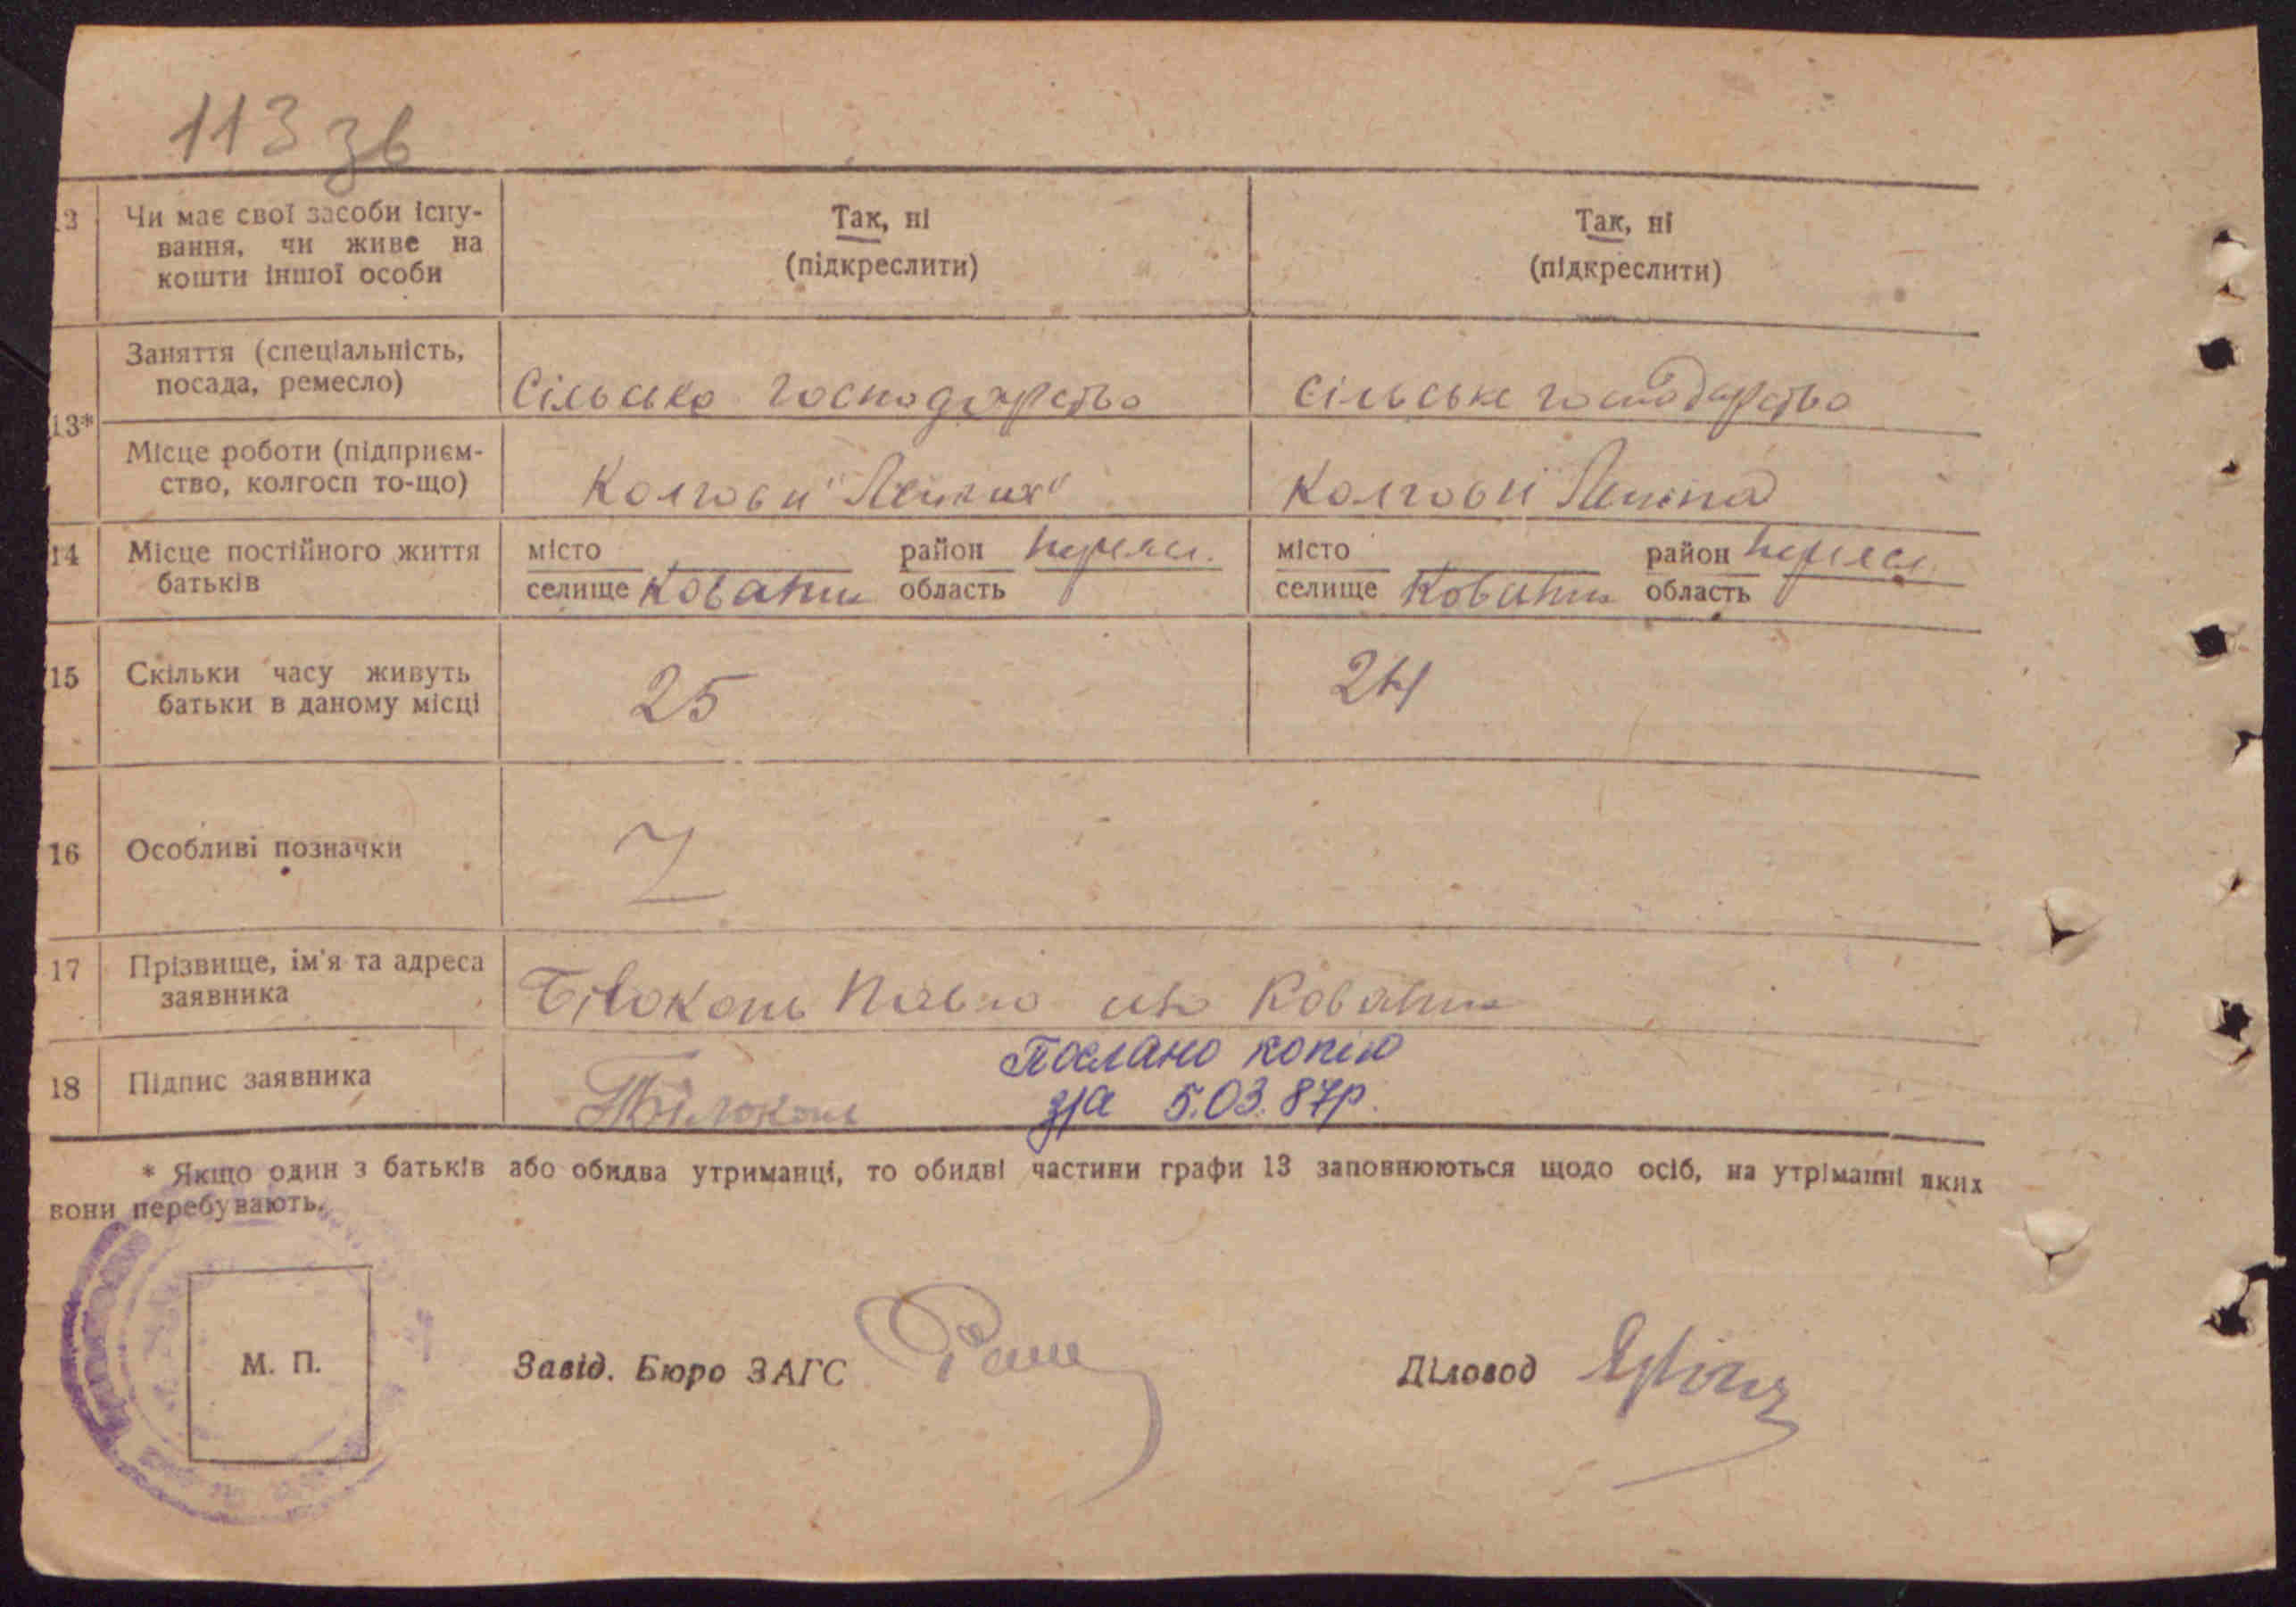 113 зв
12 Чи має свої засоби існу- Так, ні Так, ні
вання, чи живе на (підкреслити) (підкреслити)
кошти іншої особи
13* Заняття (спеціальність,
посада, ремесло) Сільське господарство сільське господарство
Місце роботи (підприєм-
ство, колгосп то-що) Колгосп "Леніна" Колгосп Леніна
14 Місце постійного життя місто район Переяс. місто район Переяс
батьків селище Ковалин область селище Ковалин область
15 Скільки часу живуть 25 24
батьки в даному місці
16 Особливі позначки Z
17 Прізвище, ім'я та адреса
заявника Білоконь Павло Ковалин
18 Підпис заявника Білоконь
Послано копію
з/а 5.03.87р.
* Якщо один з батьків або обидва утриманці, то обидві частини графи 13 заповнюються щодо осіб, на утріманні яких
вони перебувають.
М. П. Завід. Бюро ЗАГС Діловод